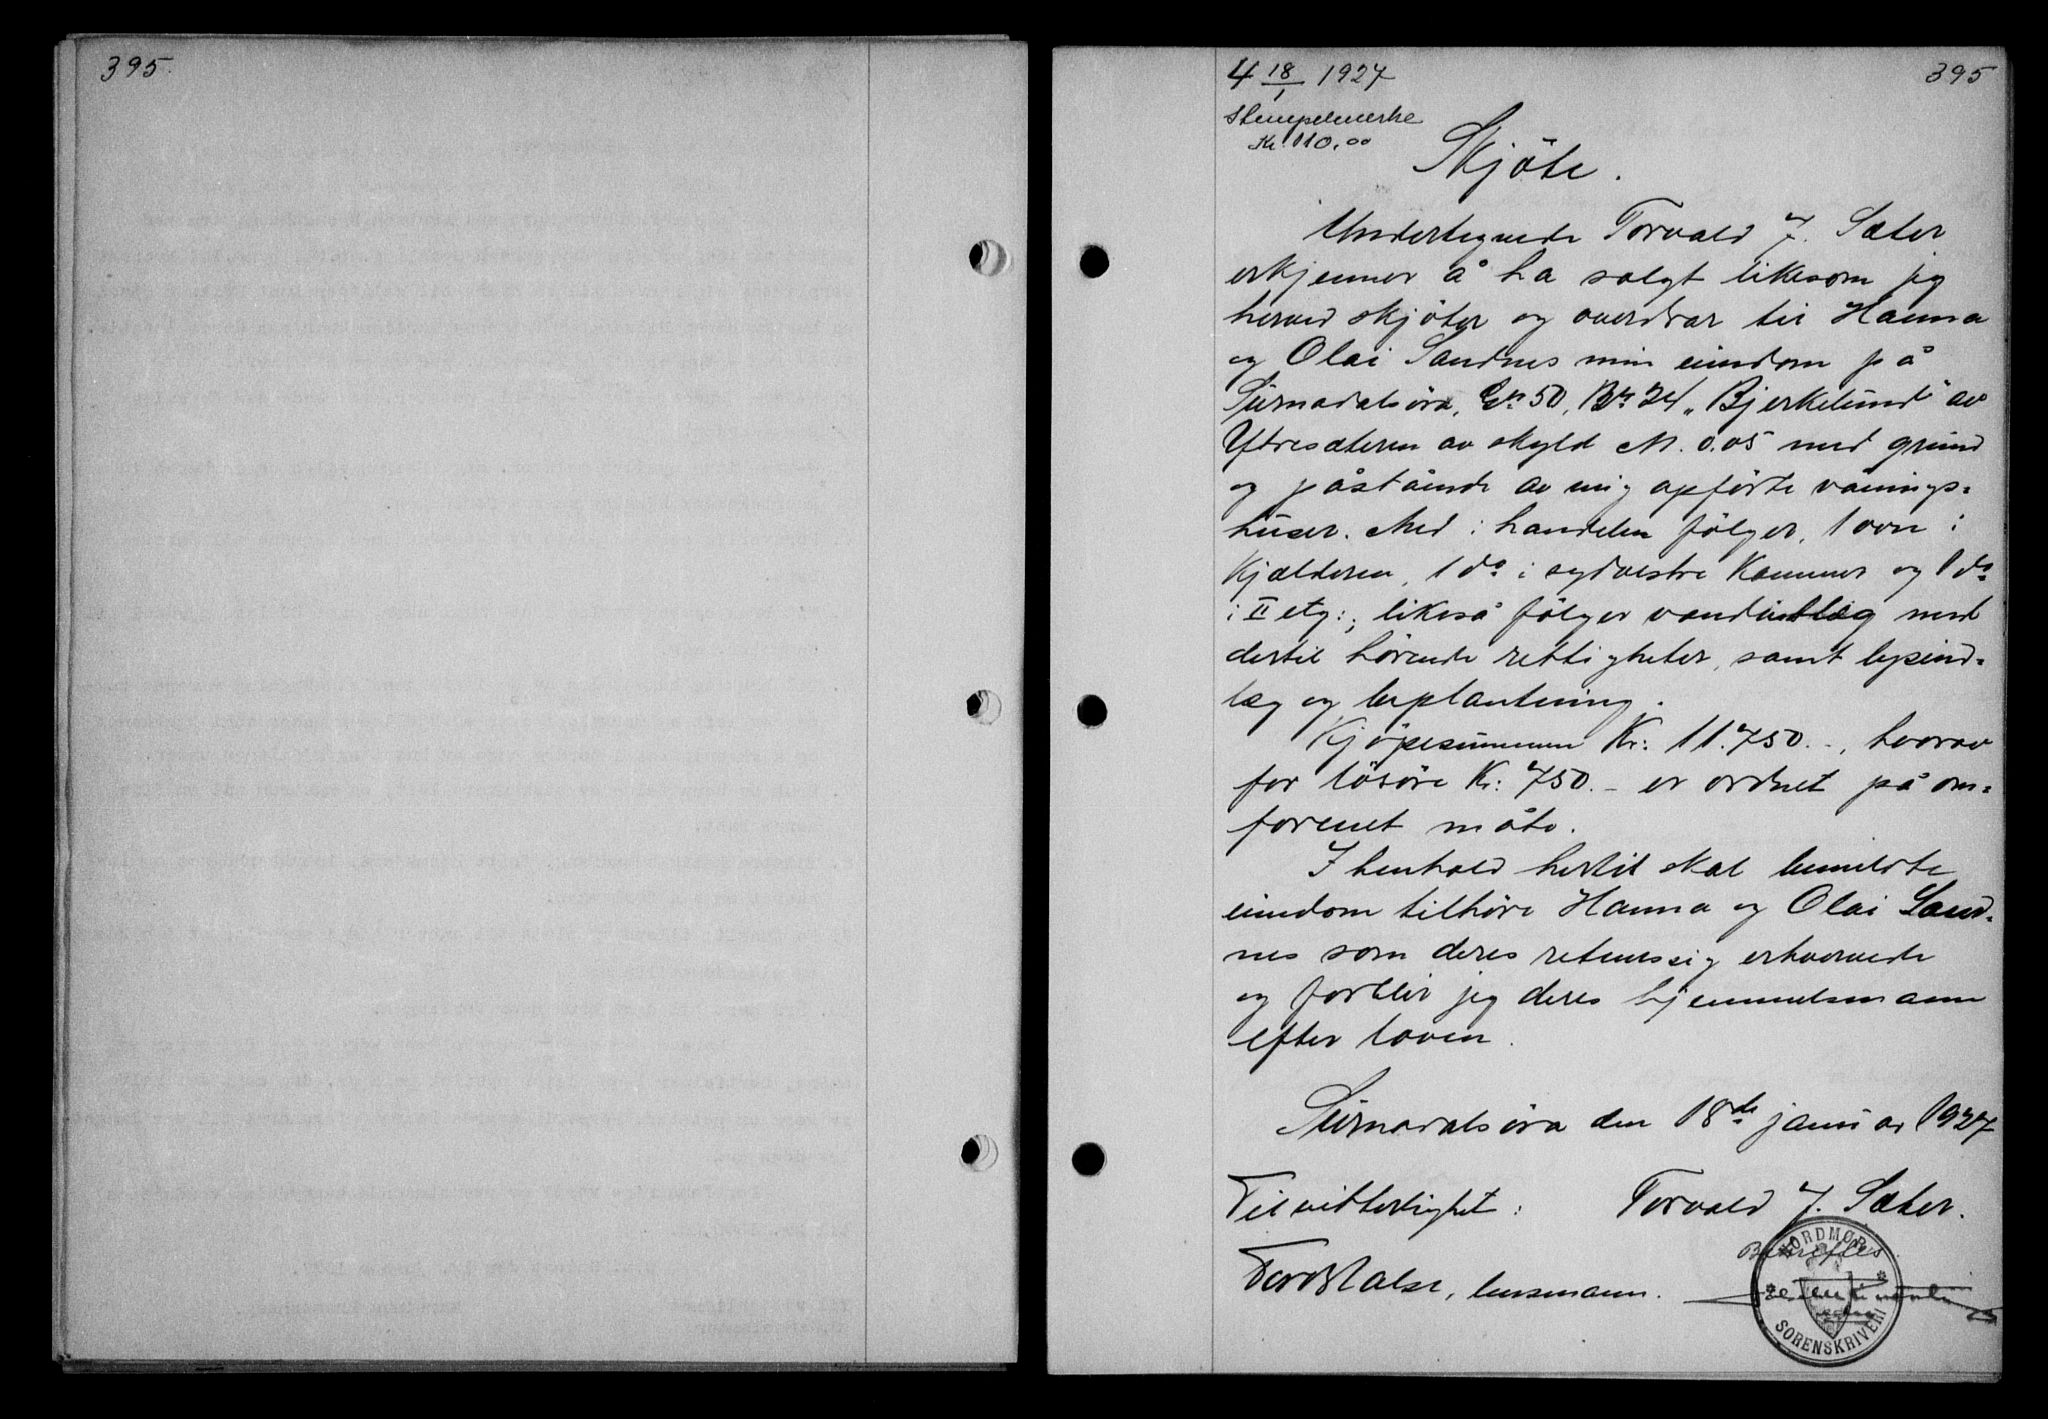 395.
4 18/1 1927
395
Stempelmerke
Kr. 110.00
Skjöte.
Undertegnede Torvald J. Sæter
erkjenner å ha solgt likesom jeg
herved skjöter og overdrar til Hanna
og Olai Sandnes min eiendom på
Surnadalsøra, Gn 50, Bn 24 „Bjerkelund" av
Ytresæteren av skyld M. 0.05 med grund
og påstående av mig opførte vånings-
huser. Med i handelen fölger, 1 ovn i
Kjælderen, 1 do i sydvestre Kammer og 1 do
i II etg:, likeså fölger vandindlæg med
dertil hörende rettigheter, samt lysind-
læg og beplantning.
Kjöpesummen Kr: 11.750.-, hvorav
for lösöre Kr: 750.- er ordnet på om-
forenet måte.
I henhold hertil skal bemeldte
eiendom tilhöre Hanna og Olai Sand-
nes som deres retmessig erhvervede
og forblir jeg deres hjemmelsmann
efter loven.
Surnadalsöra den 18de januar 1927
Til vitterlighet: Torvald J. Sæter.
Bekreftes
Tord Halse, lensmann.
NORDMØRE
SORENSKRIVERI